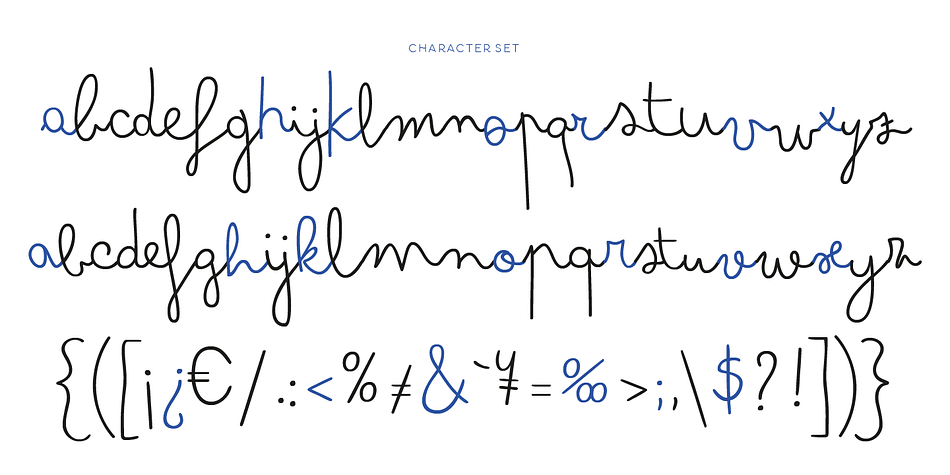 CHARACTER SET
abcdefghijklmnopqrstuvwxyz
abcdefghijklmnopqrstuvwxyz
{([¡¿€/.:<%≠&~¥=‰>;,\$?!])}